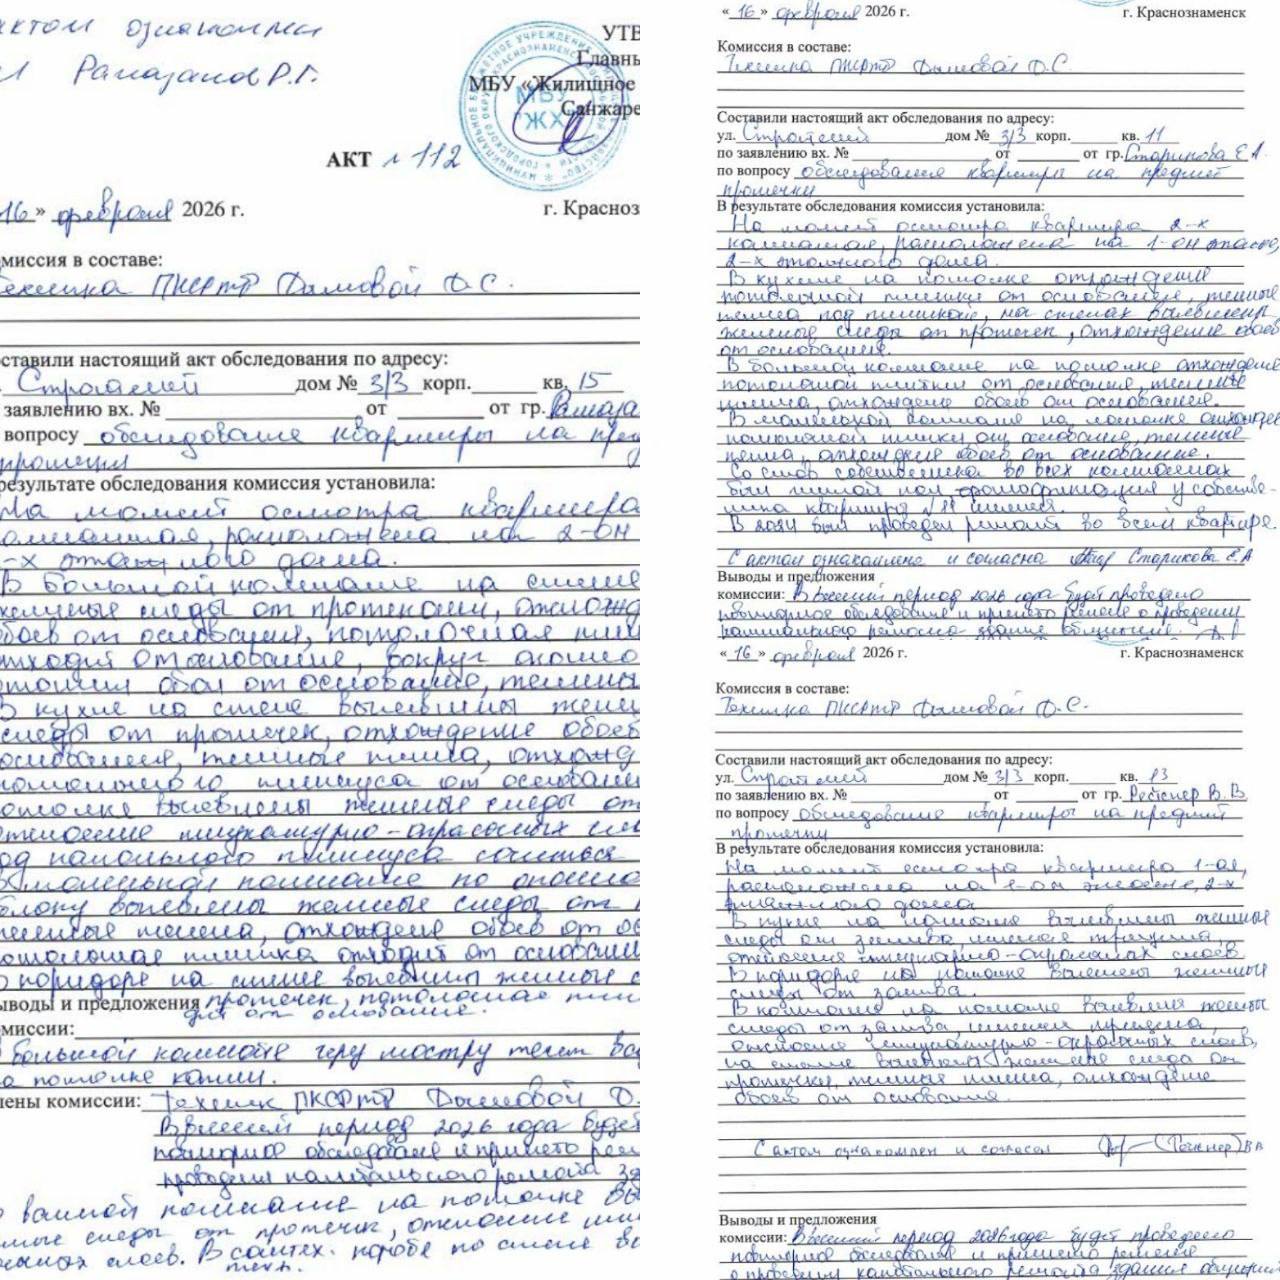 актом ознакомлен
Рамазанов Р.Г.
УТВ
Главны
МБУ «Жилищное
Санжаре
МБУ
"ЖХ"
АКТ № 112
16 » февраля 2026 г.
г. Красноз
омиссия в составе:
Техника ПКСРТР Дымовой О.С.
оставили настоящий акт обследования по адресу:
Строителей дом № 3/3 корп. кв. 15
заявлению вх. № от от гр. Рамаза
вопросу обследование квартиры на пред
протечки
результате обследования комиссия установила:
На момент осмотра квартира
комнатная, расположена на 2-ом
-х этажного дома.
В большой комнате на стене
желтые следы от протекания, отхожд
обоев от основания, потолочная пли
отходит от основание, вокруг оконно
обои от основание, темны
В кухне на стене выявлены желт
следы от протечек, отхождение обоев
основания, темные пятна, отхожд
потолочного плинтуса от основани
потолке выявлены желтые следы от
отслоение штукатурно-окрасочных сло
од напольного плинтуса сочиться
В маленькой комнате по оконно
блоку выявлены желтые следы от
темные пятна, отхождение обоев от ос
потолочная плитка отходит от основани
В коридоре на стене выявлены желтые с
ыводы и предложения протечек, потолочная пли
от основание.
омиссии:
В большой комнате через люстру течет во
на потолке капли.
лены комиссии: Техник ПКСРТР Дымовой О.
В весенний период 2026 года будет
повторное обследование и принято реш
проведения капитального ремонта зд
В ванной комнате на потолке вы
следы от протечек, отслоение шту
слоев. В сантех. коробе по стене во
течь.
« 16 » февраля 2026 г.
г. Краснознаменск
Комиссия в составе:
Техника ПКСРТР Дымовой О.С.
Составили настоящий акт обследования по адресу:
ул. Строителей дом № 3/3 корп. кв. 11
по заявлению вх. № от от гр. Старикова Е.А.
по вопросу обследования квартиры на предмет
протечки
В результате обследования комиссия установила:
На момент осмотра квартира 2-х
комнатная, расположена на 1-ом этаже,
2-х этажного дома.
В кухне на потолке отхождение
потолочной плитки от основание, темные
пятна под плиткой, на стенах выявлены
желтые следы от протечек, отхождение обоев
от основания.
В большой комнате на потолке отхождение
потолочной плитки от основания, темные
пятна, отхождение обоев от основания.
В маленькой комнате на потолке отхождение
потолочной плитки от основание, темные
пятна, отхождение обоев от основание.
Со слов собственника во всех комнатах
был теплый пол, фотофиксация у собстве-
ника квартиры №11 имеется.
В 2024 был проведен ремонт во всей квартире.
С актом ознакомлена и согласна Старикова Е.А
Выводы и предложения
комиссии: В весенний период 2026 года будет проведено
повторное обследование и принято решение о проведении
капитального ремонта здания
« 16 » февраля 2026 г.
г. Краснознаменск
Комиссия в составе:
Техника ПКСРТР Дымовой О.С.
Составили настоящий акт обследования по адресу:
ул. Строителей дом № 3/3 корп. кв. 13
по заявлению вх. № от от гр. В.В
по вопросу обследование квартиры на предмет
протечки
В результате обследования комиссия установила:
На момент осмотра квартира 1-ая,
расположена на этаже, 2-х
этажного дома
В кухне на потолке выявлены темные
следы от залива, имеется трещина,
отслоение штукатурно-окрасочных слоев
В коридоре на потолке выявлены желтые
следы от залива.
В комнате на потолке выявлены желтые
следы от залива, имеется трещина,
отслоение штукатурно-окрасочных слоев,
на стене выявлены желтые следы от
протечки, темные пятна, отхождение
обоев от основания.
С актом ознакомлен и согласен
Выводы и предложения
комиссии: В весенний период 2026 года будет проведено
повторное обследование и принято решение
о проведении капитального ремонта здания